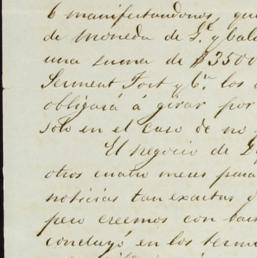 6 manifestandonos, que
de moneda de
una suma de $3500
Serment Fort y Cª. los
obligará á girar por
solo en el caso de no
El negocio de
otros cuatro meses para
noticias tan exactas
pero creemos con
concluyó en los